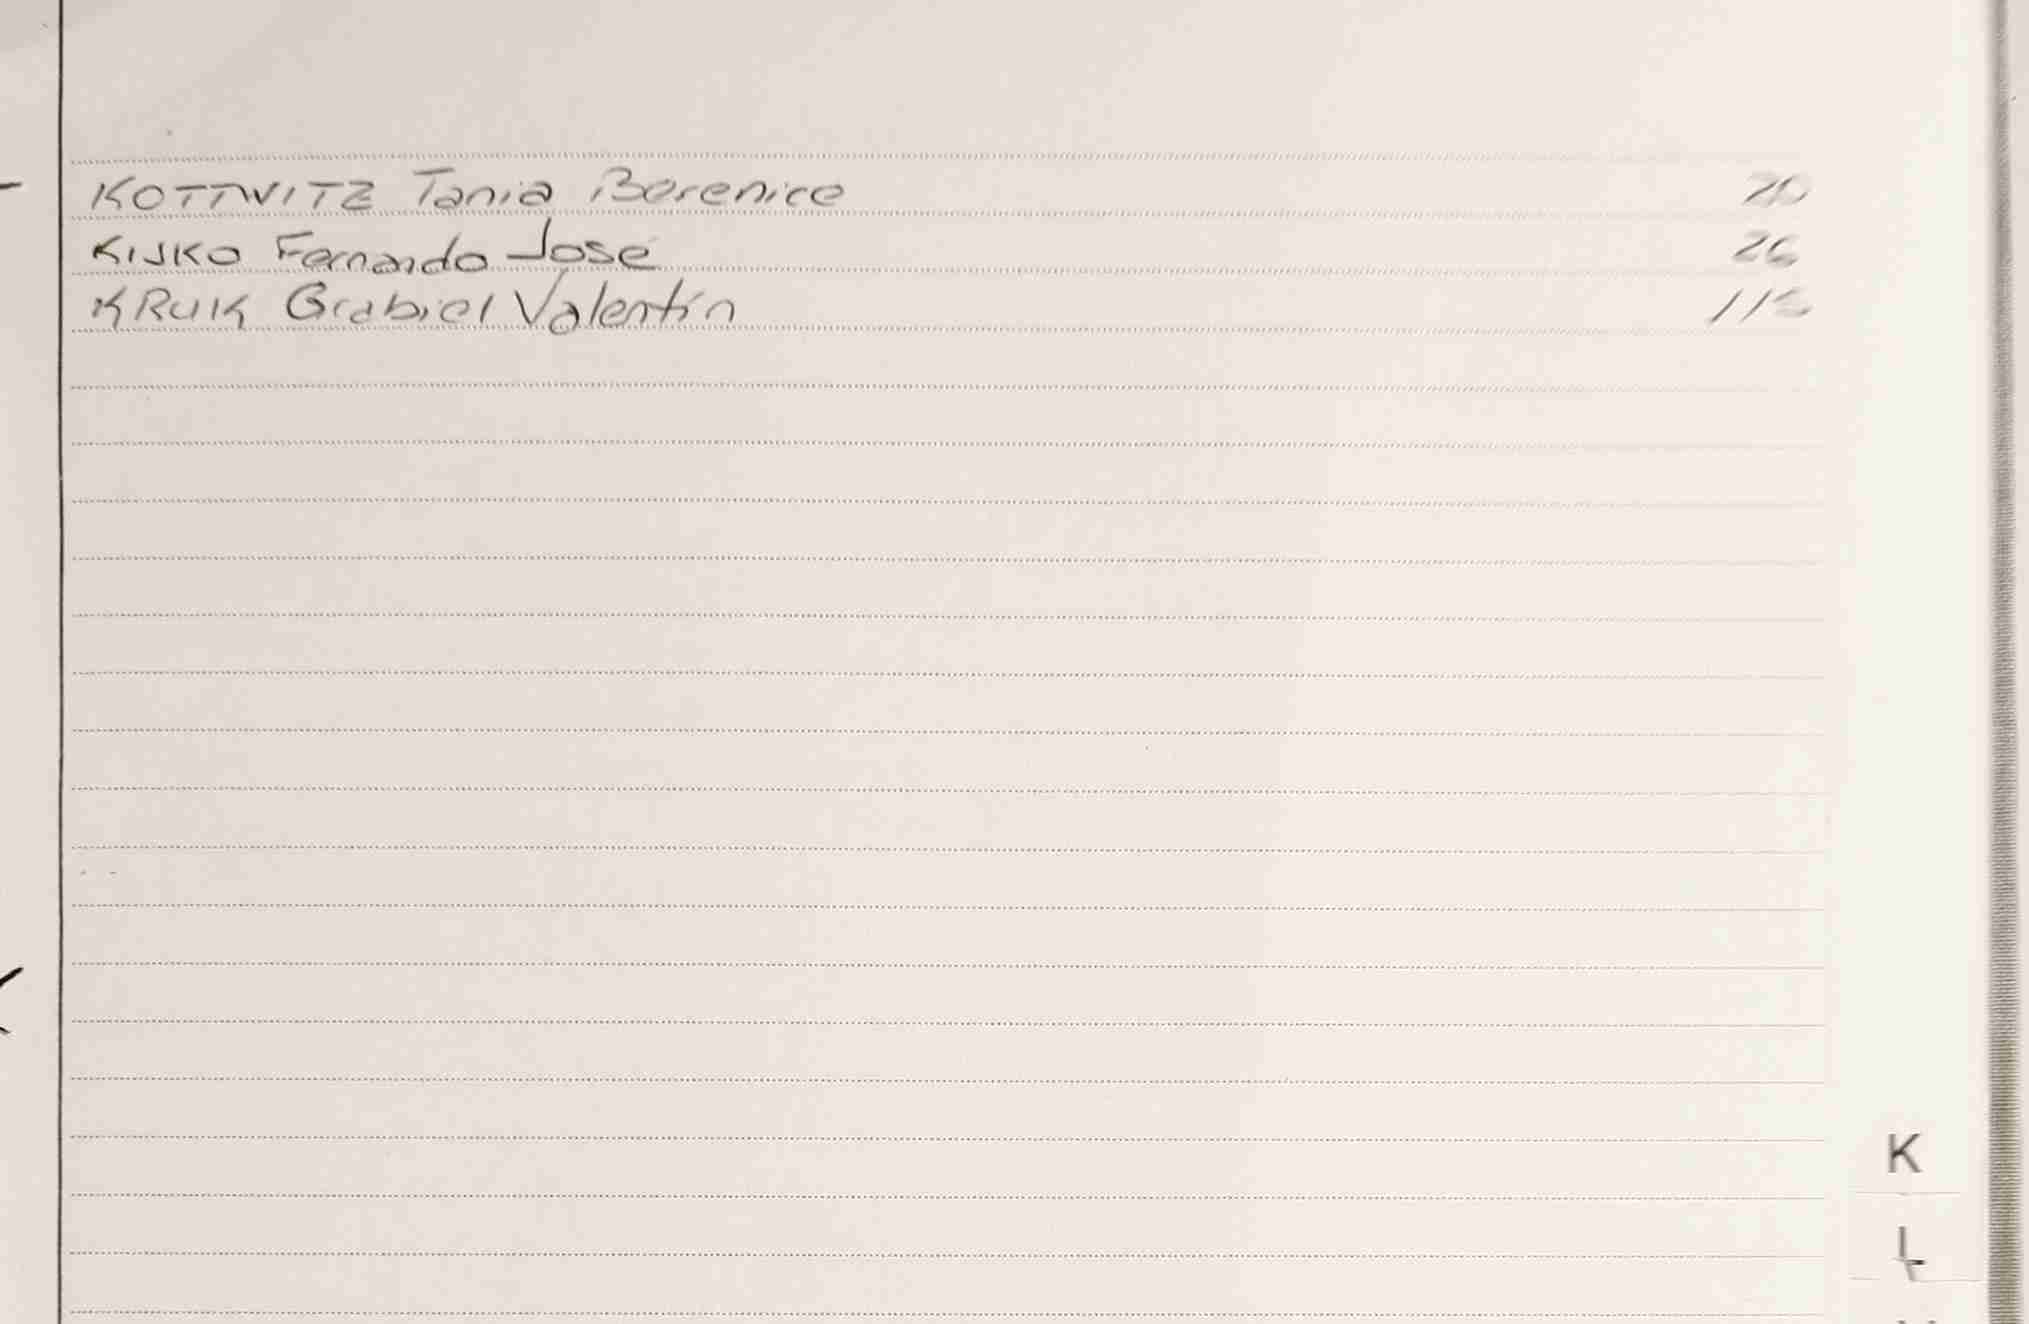 KOTTWITZ Tania Berenice 20
KIJKO Fernando José 26
KRUK Grabiel Valentín
K
L